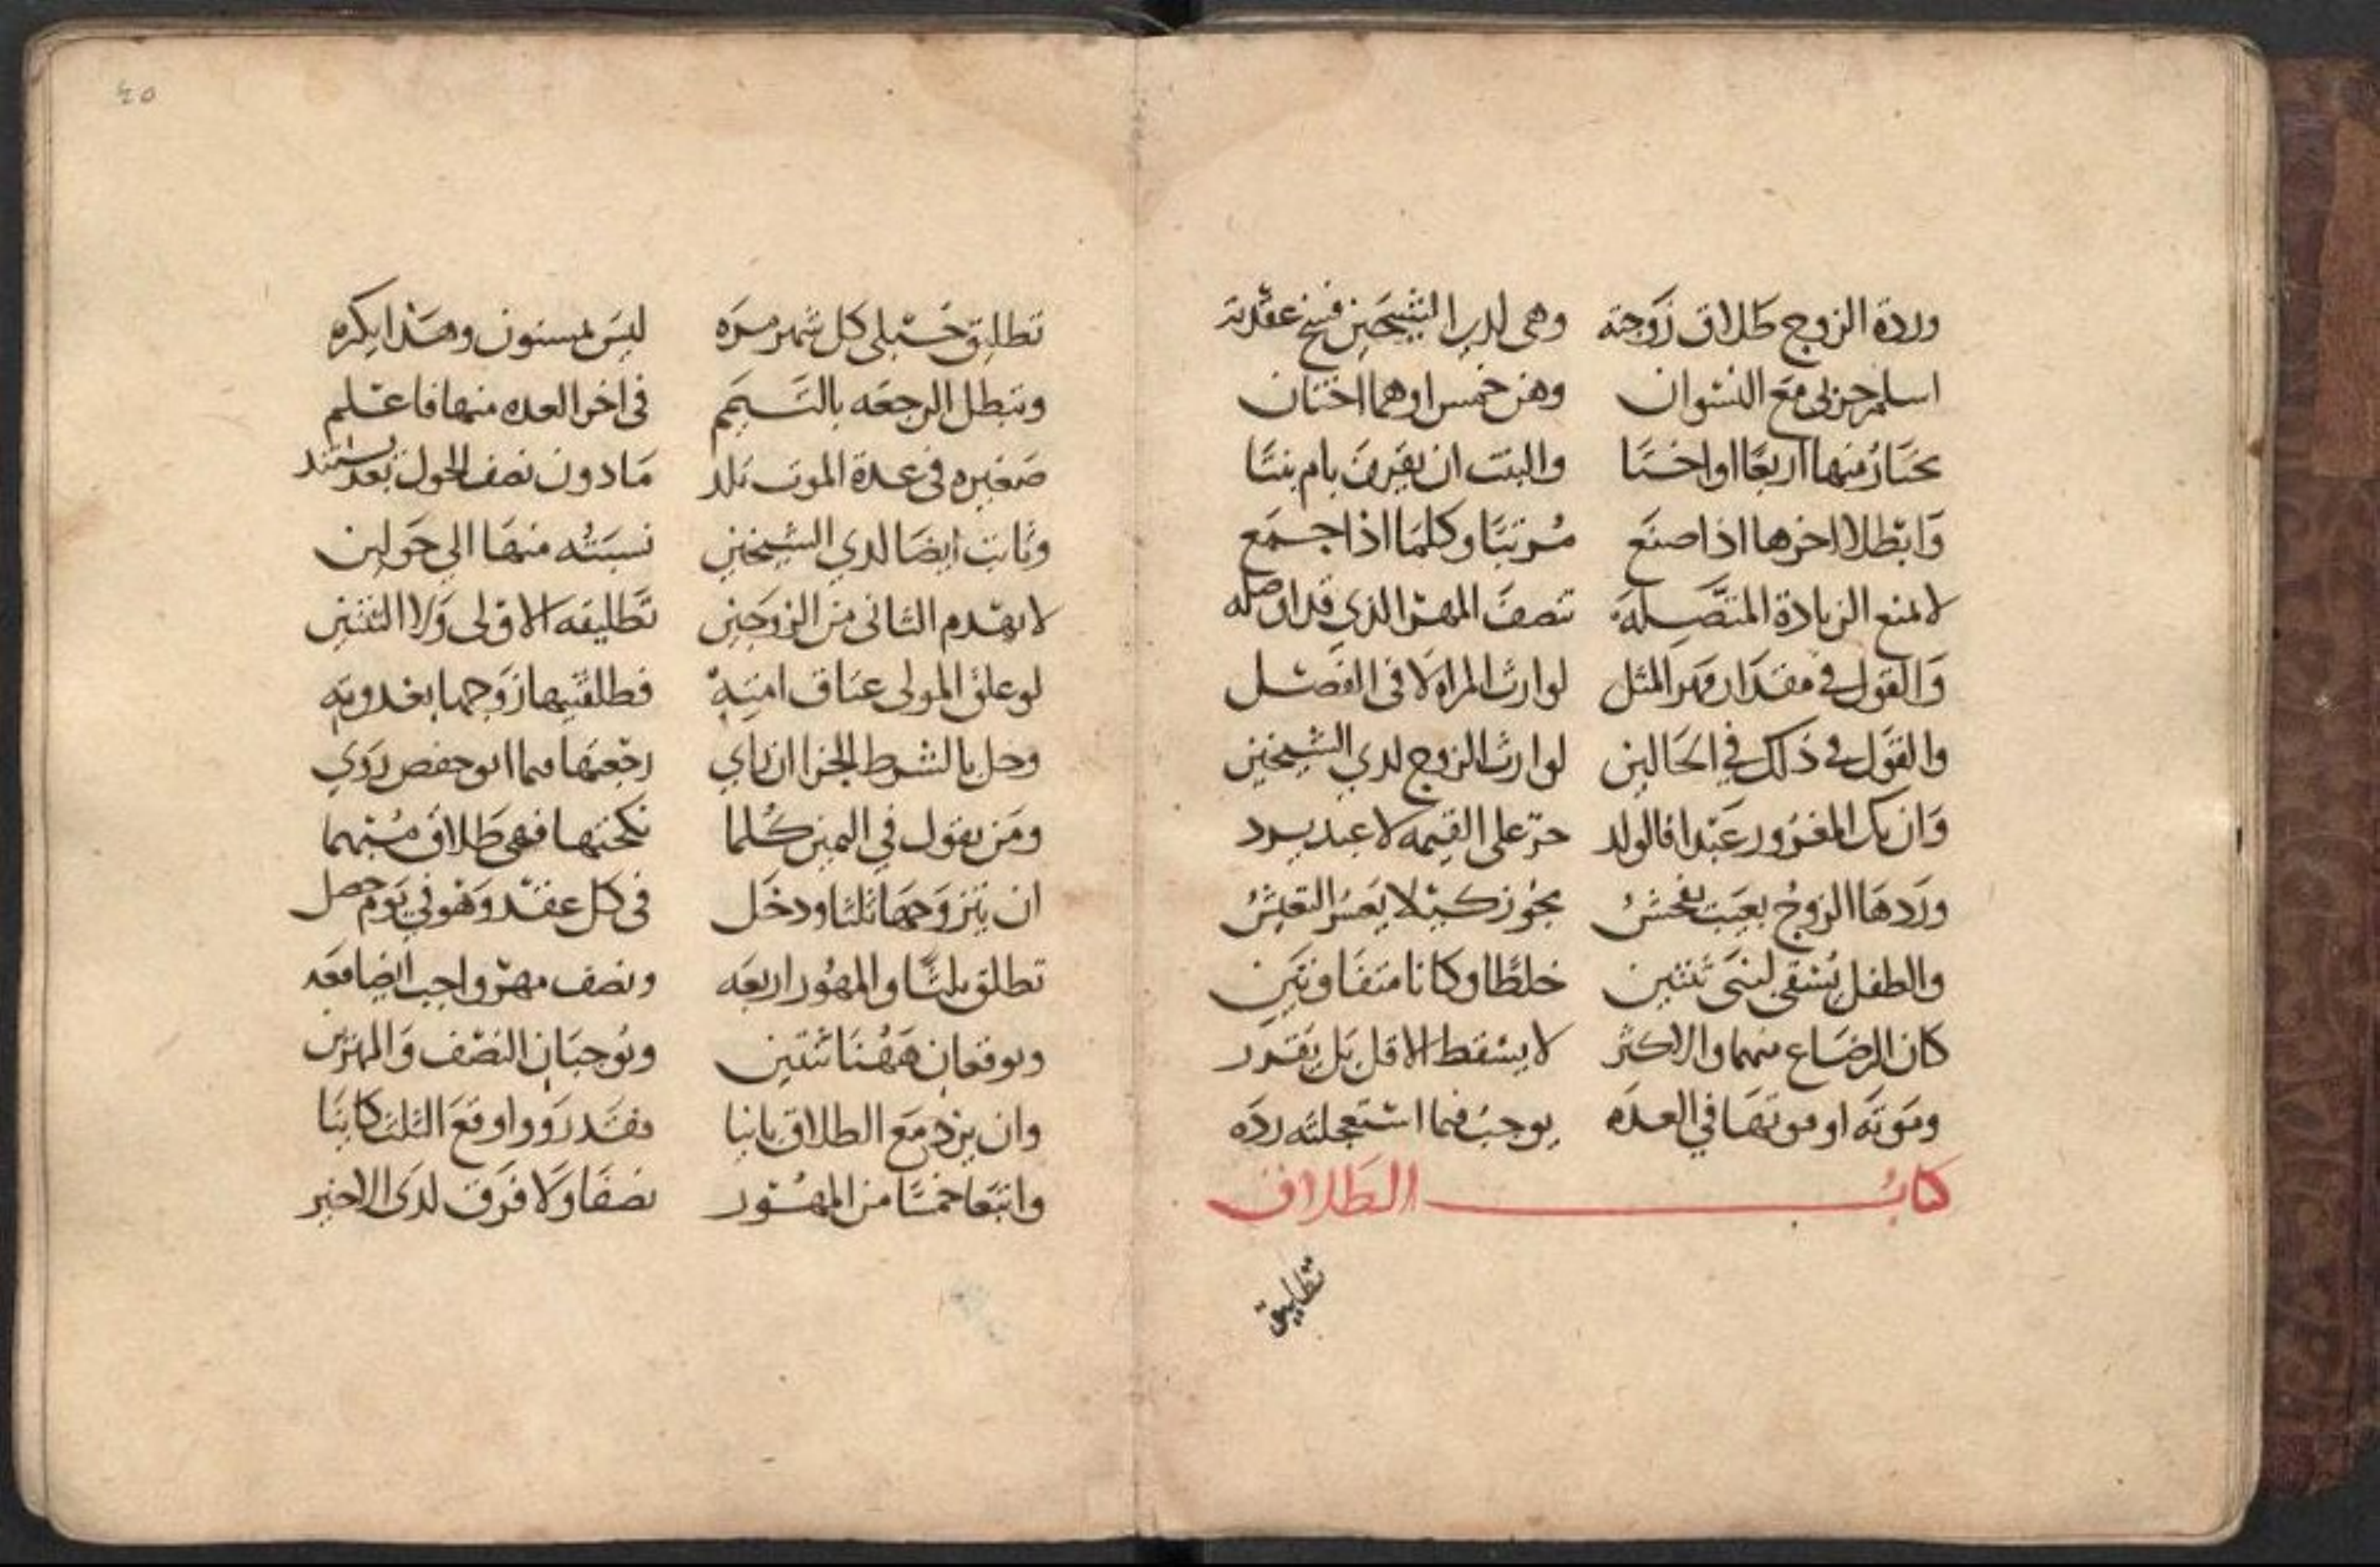 وردة الزوج طلاق زوجته وهي لدي الشيحين فسخ عقدته
اسلم حربي مع النسوان وهن خمس او هما اختان
يختار منها اربعا او اختا والبنت ان يقرن بام بنتا
وابطلا اخرها اذا صنع مرتبا وكلما اذا جمع
لا تمنع الزيادة المتصله تنصف المهر الذي قد اصله
والقول في مقدار مهر المثل لوارث المراه لا في الفصل
والقول في ذلك في الحالين لوارث الزوج لدي الشيخين
وان يك المغرور عبدا فالولد حر على القيمه لا عبد يرد
وردها الزوج بعيب يفحش يجوز كيلا يعسر التعيش
والطفل يسقى لبنى ثنتين خلطا وكانا متفاوتين
كان الرضاع منهما والاكثر لا يسقط الاقل بل يقدر
وموته او موتها في العده يوجب فيما استعجلته رده
كتاب الطلاق
تطليق
٤٥
تطليق حبلى كل شهر مره ليس بمسنون وهذا يكره
وتبطل الرجعه بالتيمم في اخر العده منها فاعلم
صغيره في عدة الموت تلد ما دون نصف الحول بعد يستند
وثابت ايضا لدي الشيخين نسبته منها الي حولين
لا يهدم الثاني من الزوجين تطليقه الاولى ولا الثنتين
لو علق المولى عتاق امته فطلقتيها زوجها بغدوته
وحل بالشرط الجزا ان راي رجعتها فيما ابو حفص روي
ومن يقول في اليمين كلما نكحتها فهي طلاق مبهما
ان يتزوجها ثلثا ودخل في كل عقد وهو في يوم حصل
تطلق ثلثا والمهور اربعه ونصف مهر واجب ايضا معه
ويوقعان ههنا ثنتين ويوجبان النصف والمهرين
وان يزد مع الطلاق باينا فقد رووا وقع الثلث كاينا
واتبعا خمسا من المهور نصفا ولا فرق لدى الاخير